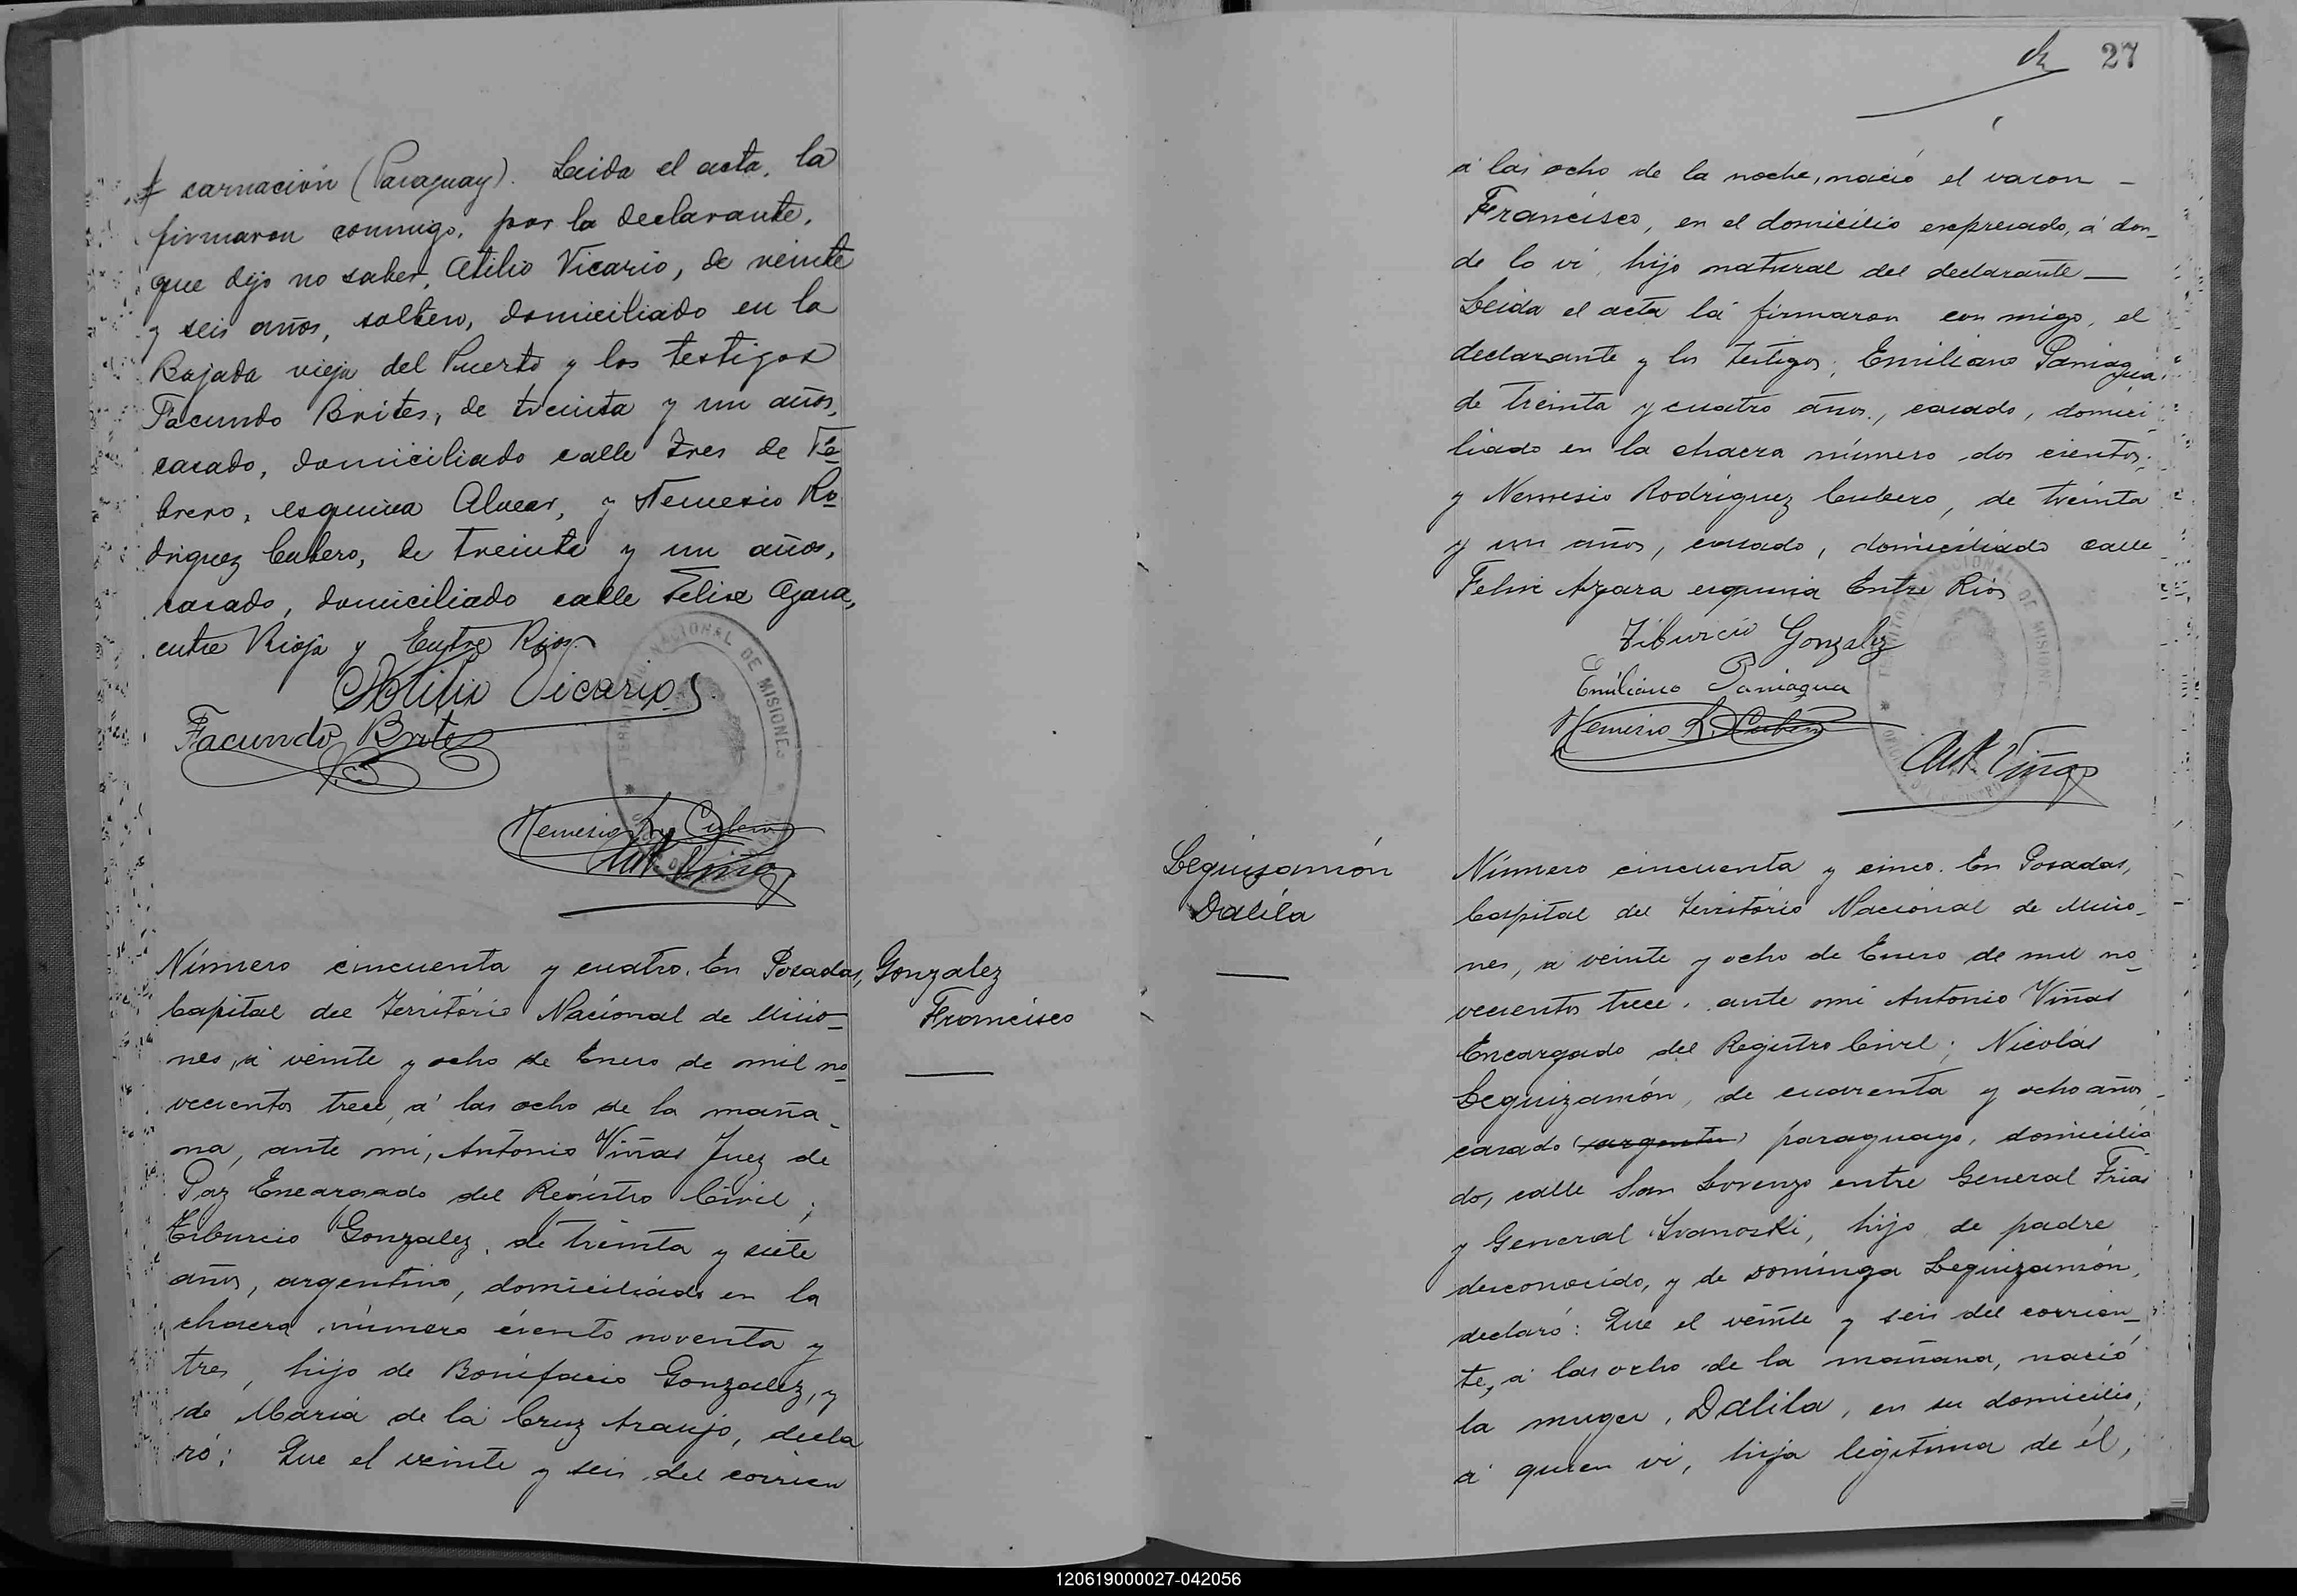 carnación (Paraguay). Leida el acta, la
firmaron conmigo, por la declarante,
que dijo no saber, Atilio Vicario, de veinte
y seis años, soltero, domiciliado en la
Bajada vieja del Puerto y los testigos
Facundo Brites, de treinta y un años,
casado, domiciliado calle tres de Fe-
brero, esquina Alvear, y Nemesio Ro-
driguez Cubero, de treinta y un años,
casado, domiciliado calle Felix Azara,
entre Rioja y Entre Rios.
Atilio Vicario
Facundo Brites
TERRITORIO NACIONAL DE MISIONES
Nemesio R. Cubero
Ant Viñas
Número cincuenta y cuatro. En Posadas,
Capital del Território Nacional de Misio-
nes, á veinte y ocho de Enero de mil no-
vecientos trece, á las ocho de la maña-
na, ante mi, Antonio Viñas Juez de
Paz Encargado del Registro Civil;
Tiburcio Gonzalez, de treinta y siete
años, argentino, domiciliado en la
chacra número ciento noventa y
tres, hijo de Bonifacio Gonzalez, y
de Maria de la Cruz Araujo, decla
ró: Que el veinte y seis del corrien
Gonzalez
Francisco
27
á las ocho de la noche, nació el varon -
Francisco, en el domicilio expresado, á don-
de lo vi, hijo natural del declarante —
Leida el acta la firmaron con migo, el
declarante y los testigos, Emiliano Paniagua,
de treinta y cuatro años, casado, domici
liado en la chacra número dos cientos,
y Nemesio Rodriguez Cubero, de treinta
y un años, casado, domiciliado calle
Felix Azara esquina Entre Rios
Tiburcio Gonzalez
Emiliano Paniagua
Nemesio R. Cubero
TERRITORIO NACIONAL DE MISIONES
Ant Viñas
Leguizamón
Dalila
Número cincuenta y cinco. En Posadas,
Capital del Território Nacional de Misio-
nes, á veinte y ocho de Enero de mil no-
vecientos trece, ante mi Antonio Viñas
Encargado del Registro Civil; Nicolás
Leguizamón, de cuarenta y ocho años
casado (argentin) paraguayo, domicilia
do, calle San Lorenzo entre General Frias
y General Ivanoski, hijo de padre
desconocido, y de Dominga Leguizamón,
declaró: Que el veinte y seis del corrien-
te, á las ocho de la mañana, nació
la muger, Dalila, en su domicilio,
á quien vi, hija legitima de él,
120619000027-042056